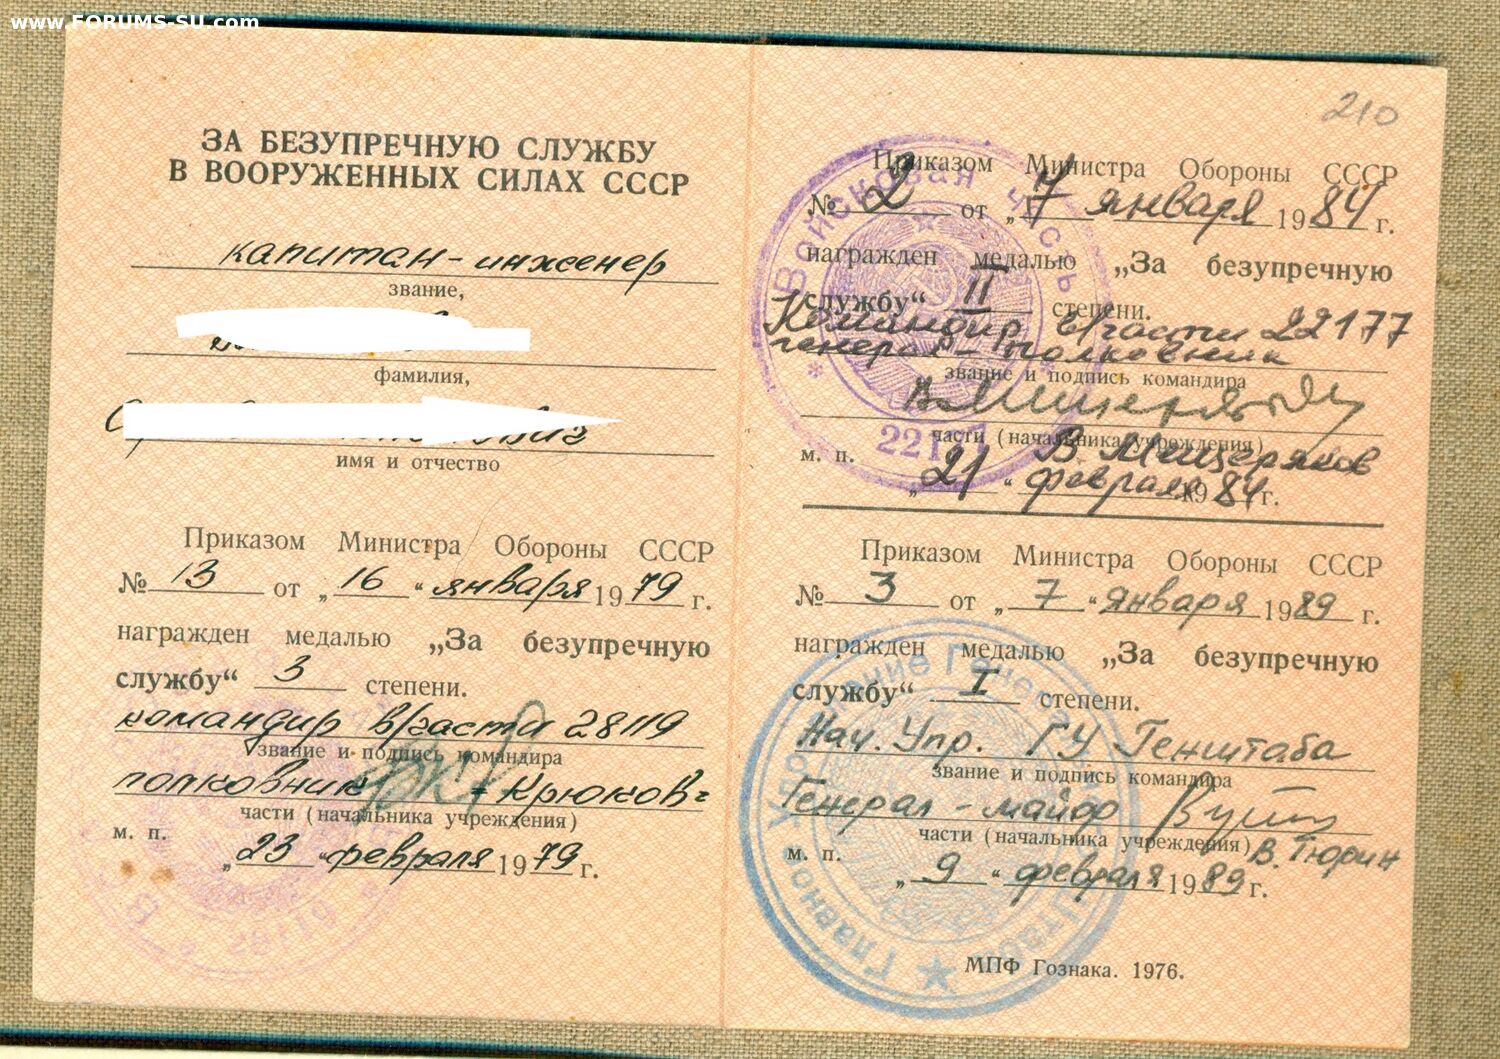 www.FORUMS-SU.com
ЗА БЕЗУПРЕЧНУЮ СЛУЖБУ
В ВООРУЖЕННЫХ СИЛАХ СССР
капитан-инженер
звание,
фамилия,
имя и отчество
Приказом Министра Обороны СССР
№ 13 от „ 16 “ января 1979 г.
награжден медалью „За безупречную
службу“ 3 степени.
командир в/части 28119
звание и подпись командира
полковник Крюков
части (начальника учреждения)
м. п.
„ 23 “ февраля 1979 г.
28119
210
Приказом Министра Обороны СССР
№ 2 от „ 7 января 1984 г.
награжден медалью „За безупречную
службу“ II степени.
Командир в/части 22177
генерал-полковник
звание и подпись командира
части (начальника учреждения)
В Мещеряков
м. п. „ 21 “ февраля 1984 г.
Войсковая часть
22177
Приказом Министра Обороны СССР
№ 3 от „ 7 “ января 1989 г.
награжден медалью „За безупречную
службу“ I степени.
Нач. Упр. ГУ Генштаба
звание и подпись командира
Генерал-майор
части (начальника учреждения) В. Тюрин
м. п.
„ 9 “ февраля 1989 г.
МПФ Гознака. 1976.